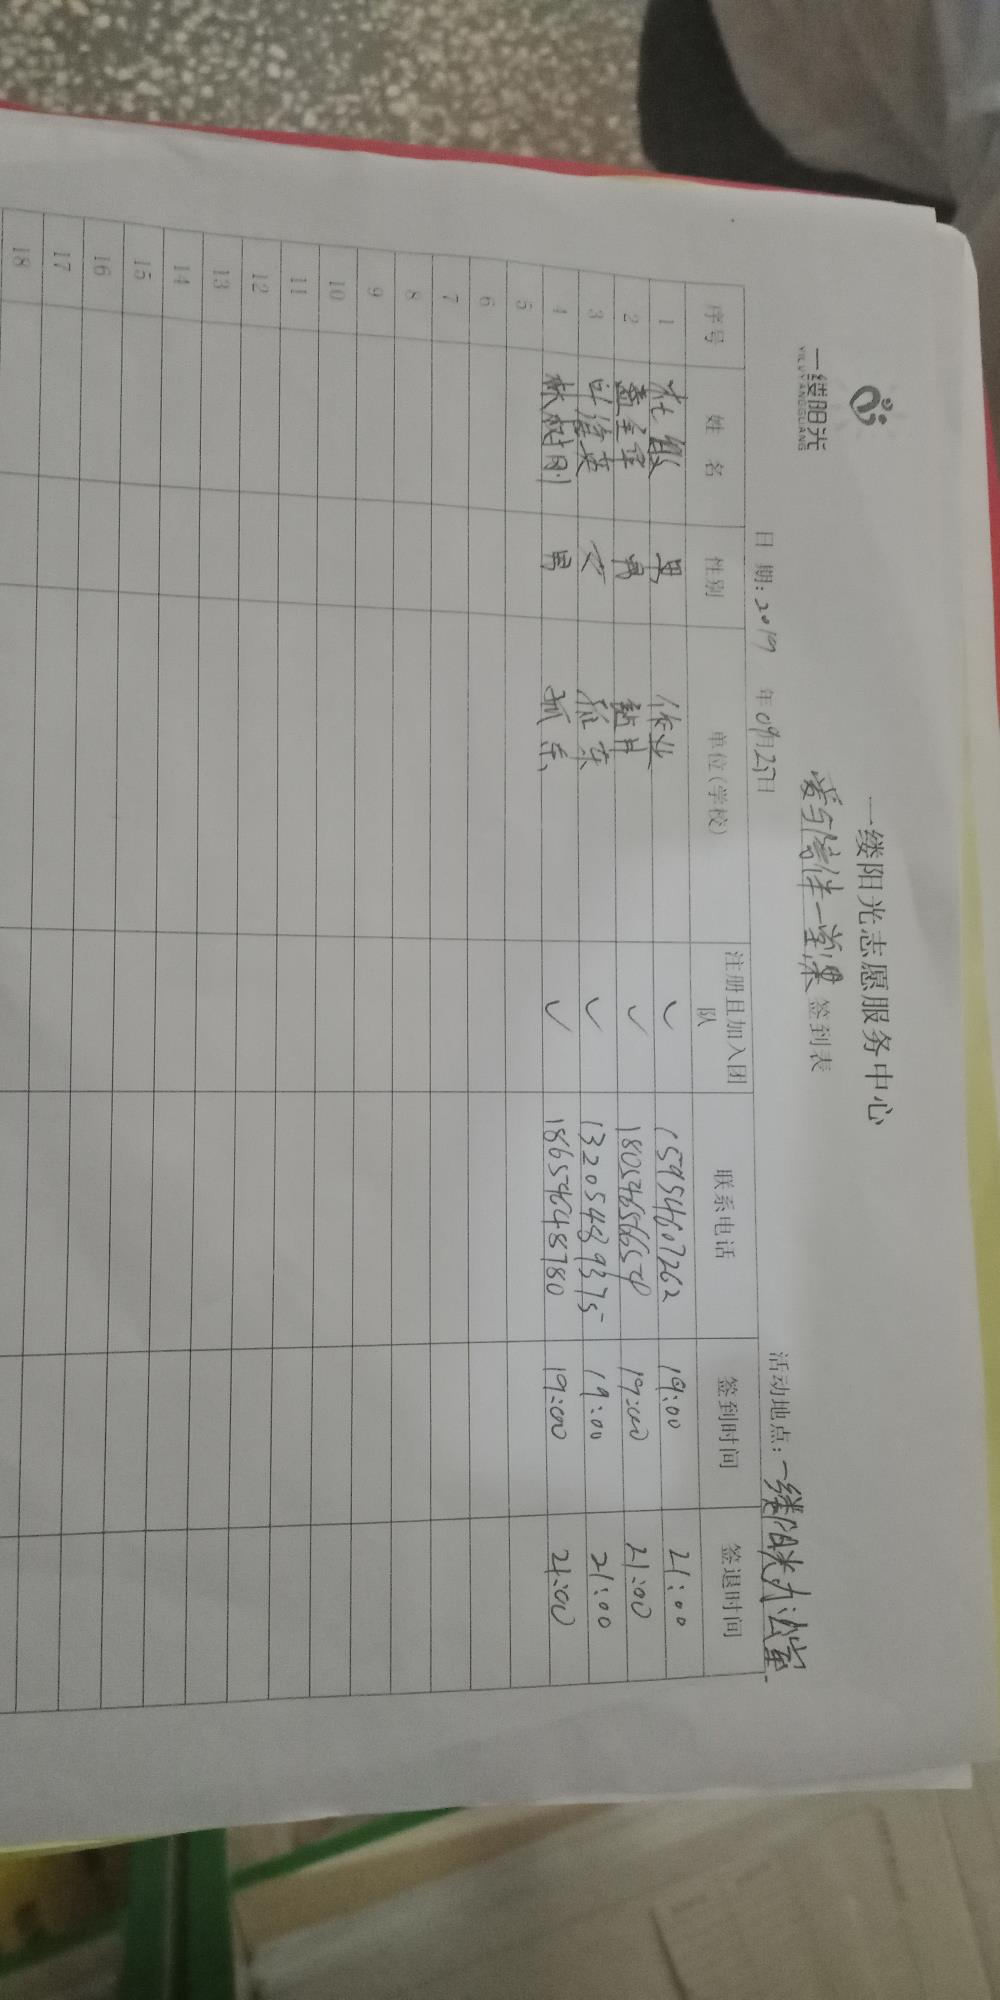 一缕阳光
YILUYANGGUANG
一缕阳光志愿服务中心
爱与陪伴一堂课 签到表
日 期: 2019 年 09月25日 活动地点: 一缕阳光办公室
序号 姓 名 性别 单位(学校) 注册且加入团队 联系电话 签到时间 签退时间
1 杜 男 作业 15954607262 19:00 21:00
2 男 钻井 18054656654 19:00 21:00
3 女 孤东 13205489375 19:00 21:00
4 林树刚 男 孤东 18654648780 19:00 21:00
5
6
7
8
9
10
11
12
13
14
15
16
17
18